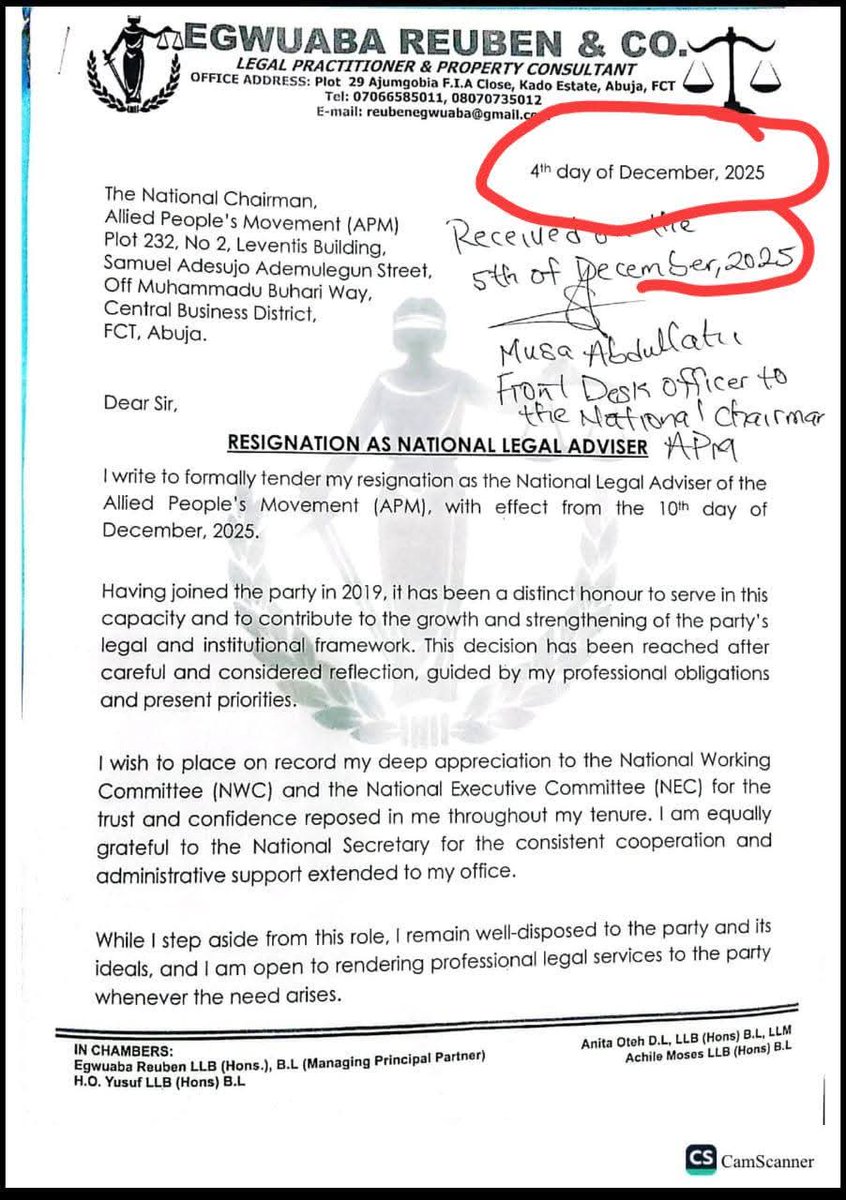 EGWUABA REUBEN & CO.
LEGAL PRACTITIONER & PROPERTY CONSULTANT
OFFICE ADDRESS: Plot 29 Ajumgobia F.I.A Close, Kado Estate, Abuja, FCT
Tel: 07066585011, 08070735012
E-mail: reubenegwuaba@gmail.co
4th day of December, 2025
The National Chairman,
Allied People's Movement (APM)
Plot 232, No 2, Leventis Building,
Samuel Adesujo Ademulegun Street,
Off Muhammadu Buhari Way,
Central Business District,
FCT, Abuja.
Received on the
5th of December, 2025
Musa
Front Desk officer to
the National Chairman
APM
Dear Sir,
RESIGNATION AS NATIONAL LEGAL ADVISER
I write to formally tender my resignation as the National Legal Adviser of the
Allied People's Movement (APM), with effect from the 10th day of
December, 2025.
Having joined the party in 2019, it has been a distinct honour to serve in this
capacity and to contribute to the growth and strengthening of the party's
legal and institutional framework. This decision has been reached after
careful and considered reflection, guided by my professional obligations
and present priorities.
I wish to place on record my deep appreciation to the National Working
Committee (NWC) and the National Executive Committee (NEC) for the
trust and confidence reposed in me throughout my tenure. I am equally
grateful to the National Secretary for the consistent cooperation and
administrative support extended to my office.
While I step aside from this role, I remain well-disposed to the party and its
ideals, and I am open to rendering professional legal services to the party
whenever the need arises.
IN CHAMBERS:
Egwuaba Reuben LLB (Hons.), B.L (Managing Principal Partner)
H.O. Yusuf LLB (Hons) B.L
Anita Oteh D.L, LLB (Hons) B.L, LLM
Achile Moses LLB (Hons) B.L
CS CamScanner